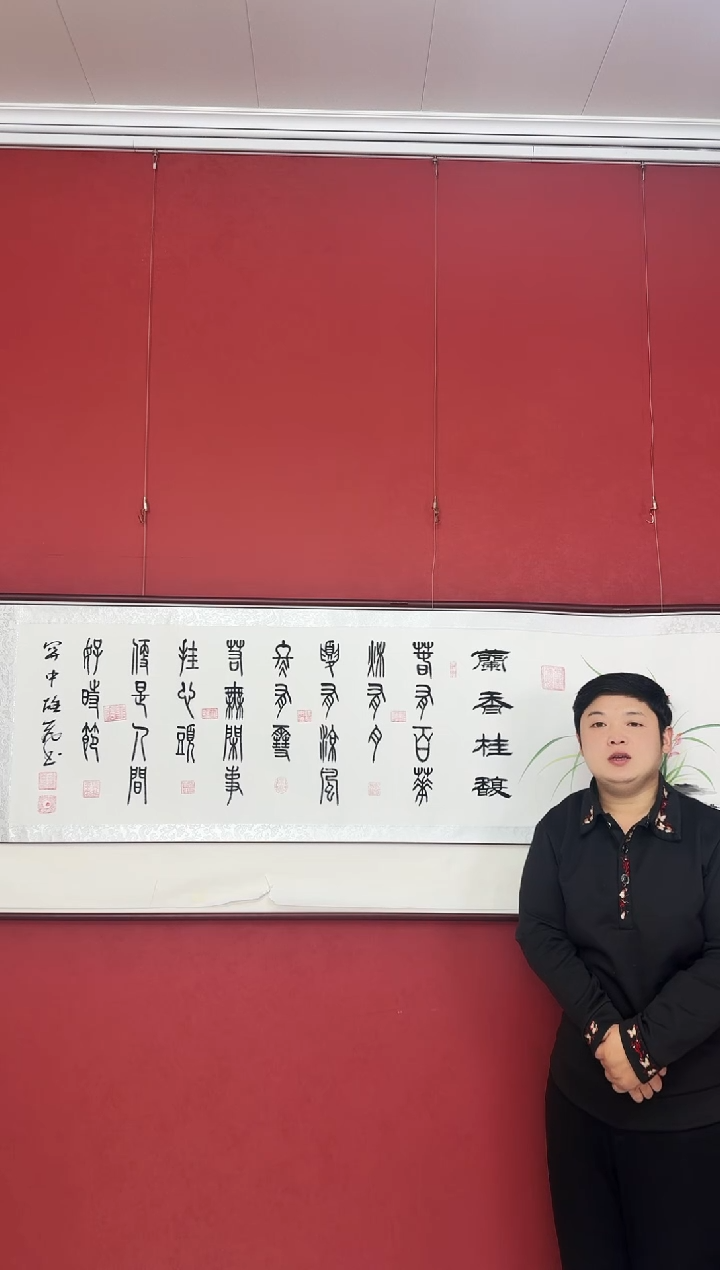 蘭香桂馥
春有百華
秋有月
夏有涼風
冬有雪
若無閑事
挂心頭
便是人間
好時節